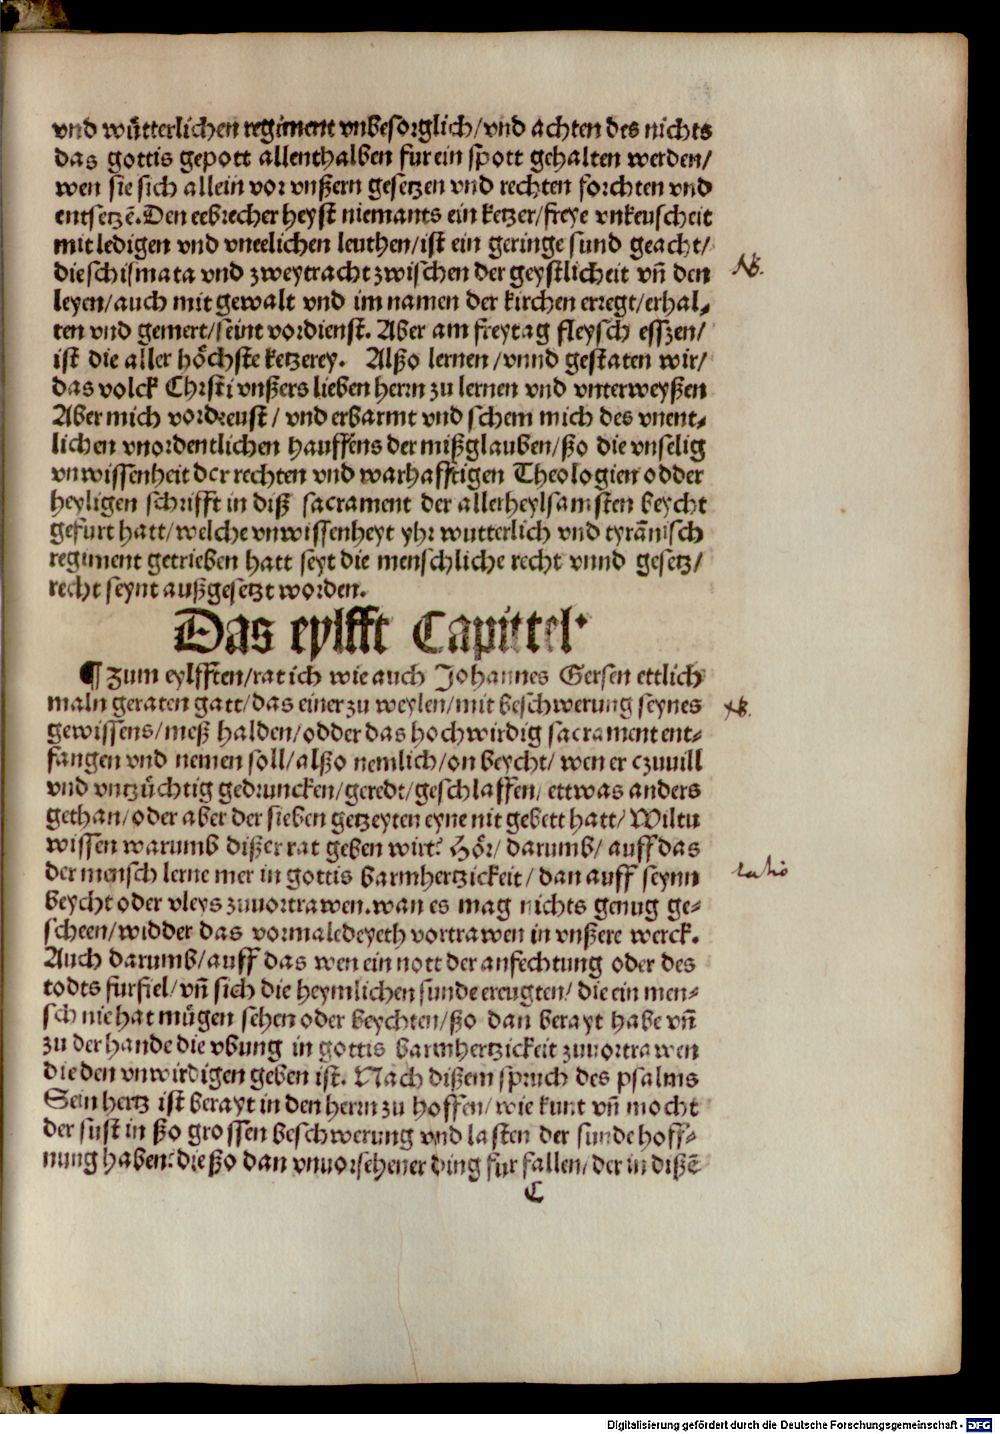 vnd wütterlichen regiment vnbesorglich/vnd achten des nichts
das gottis gepott allenthalben fur ein spott gehalten werden/
wen sie sich allein vor vnßern gesetzen vnd rechten forchten vnd
entsetzē. Den eebrecher heyst niemants ein ketzer/freye vnkeuscheit
mit ledigen vnd vneelichen leuthen/ist ein geringe sund geacht/
die schismata vnd zweytracht zwischen der geystlicheit vñ den
NB.
leyen/auch mit gewalt vnd im namen der kirchen erregt/erhal⸗
ten vnd gemert/seint vordienst. Aber am freytag fleysch esszen/
ist die aller höchste ketzerey. Alßo lernen/vnnd gestaten wir/
das volck Chrsti vnßers lieben herrn zu lernen vnd vnterweyßen
Aber mich vordreust/ vnd erbarmt vnd schem mich des vnent⸗
lichen vnordentlichen hauffens der mißglauben/ßo die vnselig
vnwissenheit der rechten vnd warhafftigen Theologien odder
heyligen schrifft in diß sacrament der allerheylsamsten beycht
gefurt hatt/welche vnwissenheyt yhr wutterlich vnd tyrãnisch
regiment getrieben hatt seyt die menschliche recht vnnd gesetz/
recht seynt außgesetzt worden.
Das eylfft Capittel.
¶ Zum eylfften/rat ich wie auch Johannes Gersen ettlich
maln geraten gatt/das einer zu weylen/mit beschwerung seynes
NB.
gewissens/meß halden/odder das hochwirdig sacrament ent⸗
fangen vnd nemen soll/alßo nemlich/on beycht/ wen er czuuill
vnd vntzüchtig gedruncken/geredt/geschlaffen/ ettwas anders
gethan/oder aber der sieben getzeyten eyne nit gebett hatt/ Wiltu
wissen warumb dißer rat geben wirt? Hör/ darumb/ auff das
der mensch lerne mer in gottis barmhertzickeit/ dan auff seynn
ratio
beycht oder vleys zuuortrawen. wan es mag nichts genug ge⸗
scheen/widder das vormaledeyeth vortrawen in vnßere werck.
Auch darumb/auff das wen ein nott der anfechtung oder des
todts furfiel/vñ sich die heymlichen sunde ereugten/ die ein men⸗
sch nie hat mügen sehen oder beychten/ßo dan berayt habe vñ
zu der hande die vbung in gottis barmhertzickeit zuuortrawen
die den vnwirdigen geben ist. Nach dißem spruch des psalms
Sein hertz ist berayt in den herrn zu hoffen/ wie kunt vñ mocht
der sust in ßo grossen beschwerung vnd lasten der sunde hoff⸗
nung haben? die ßo dan vnuorsehener ding fur fallen/der in dißē
C
Digitalisierung gefördert durch die Deutsche Forschungsgemeinschaft - DFG